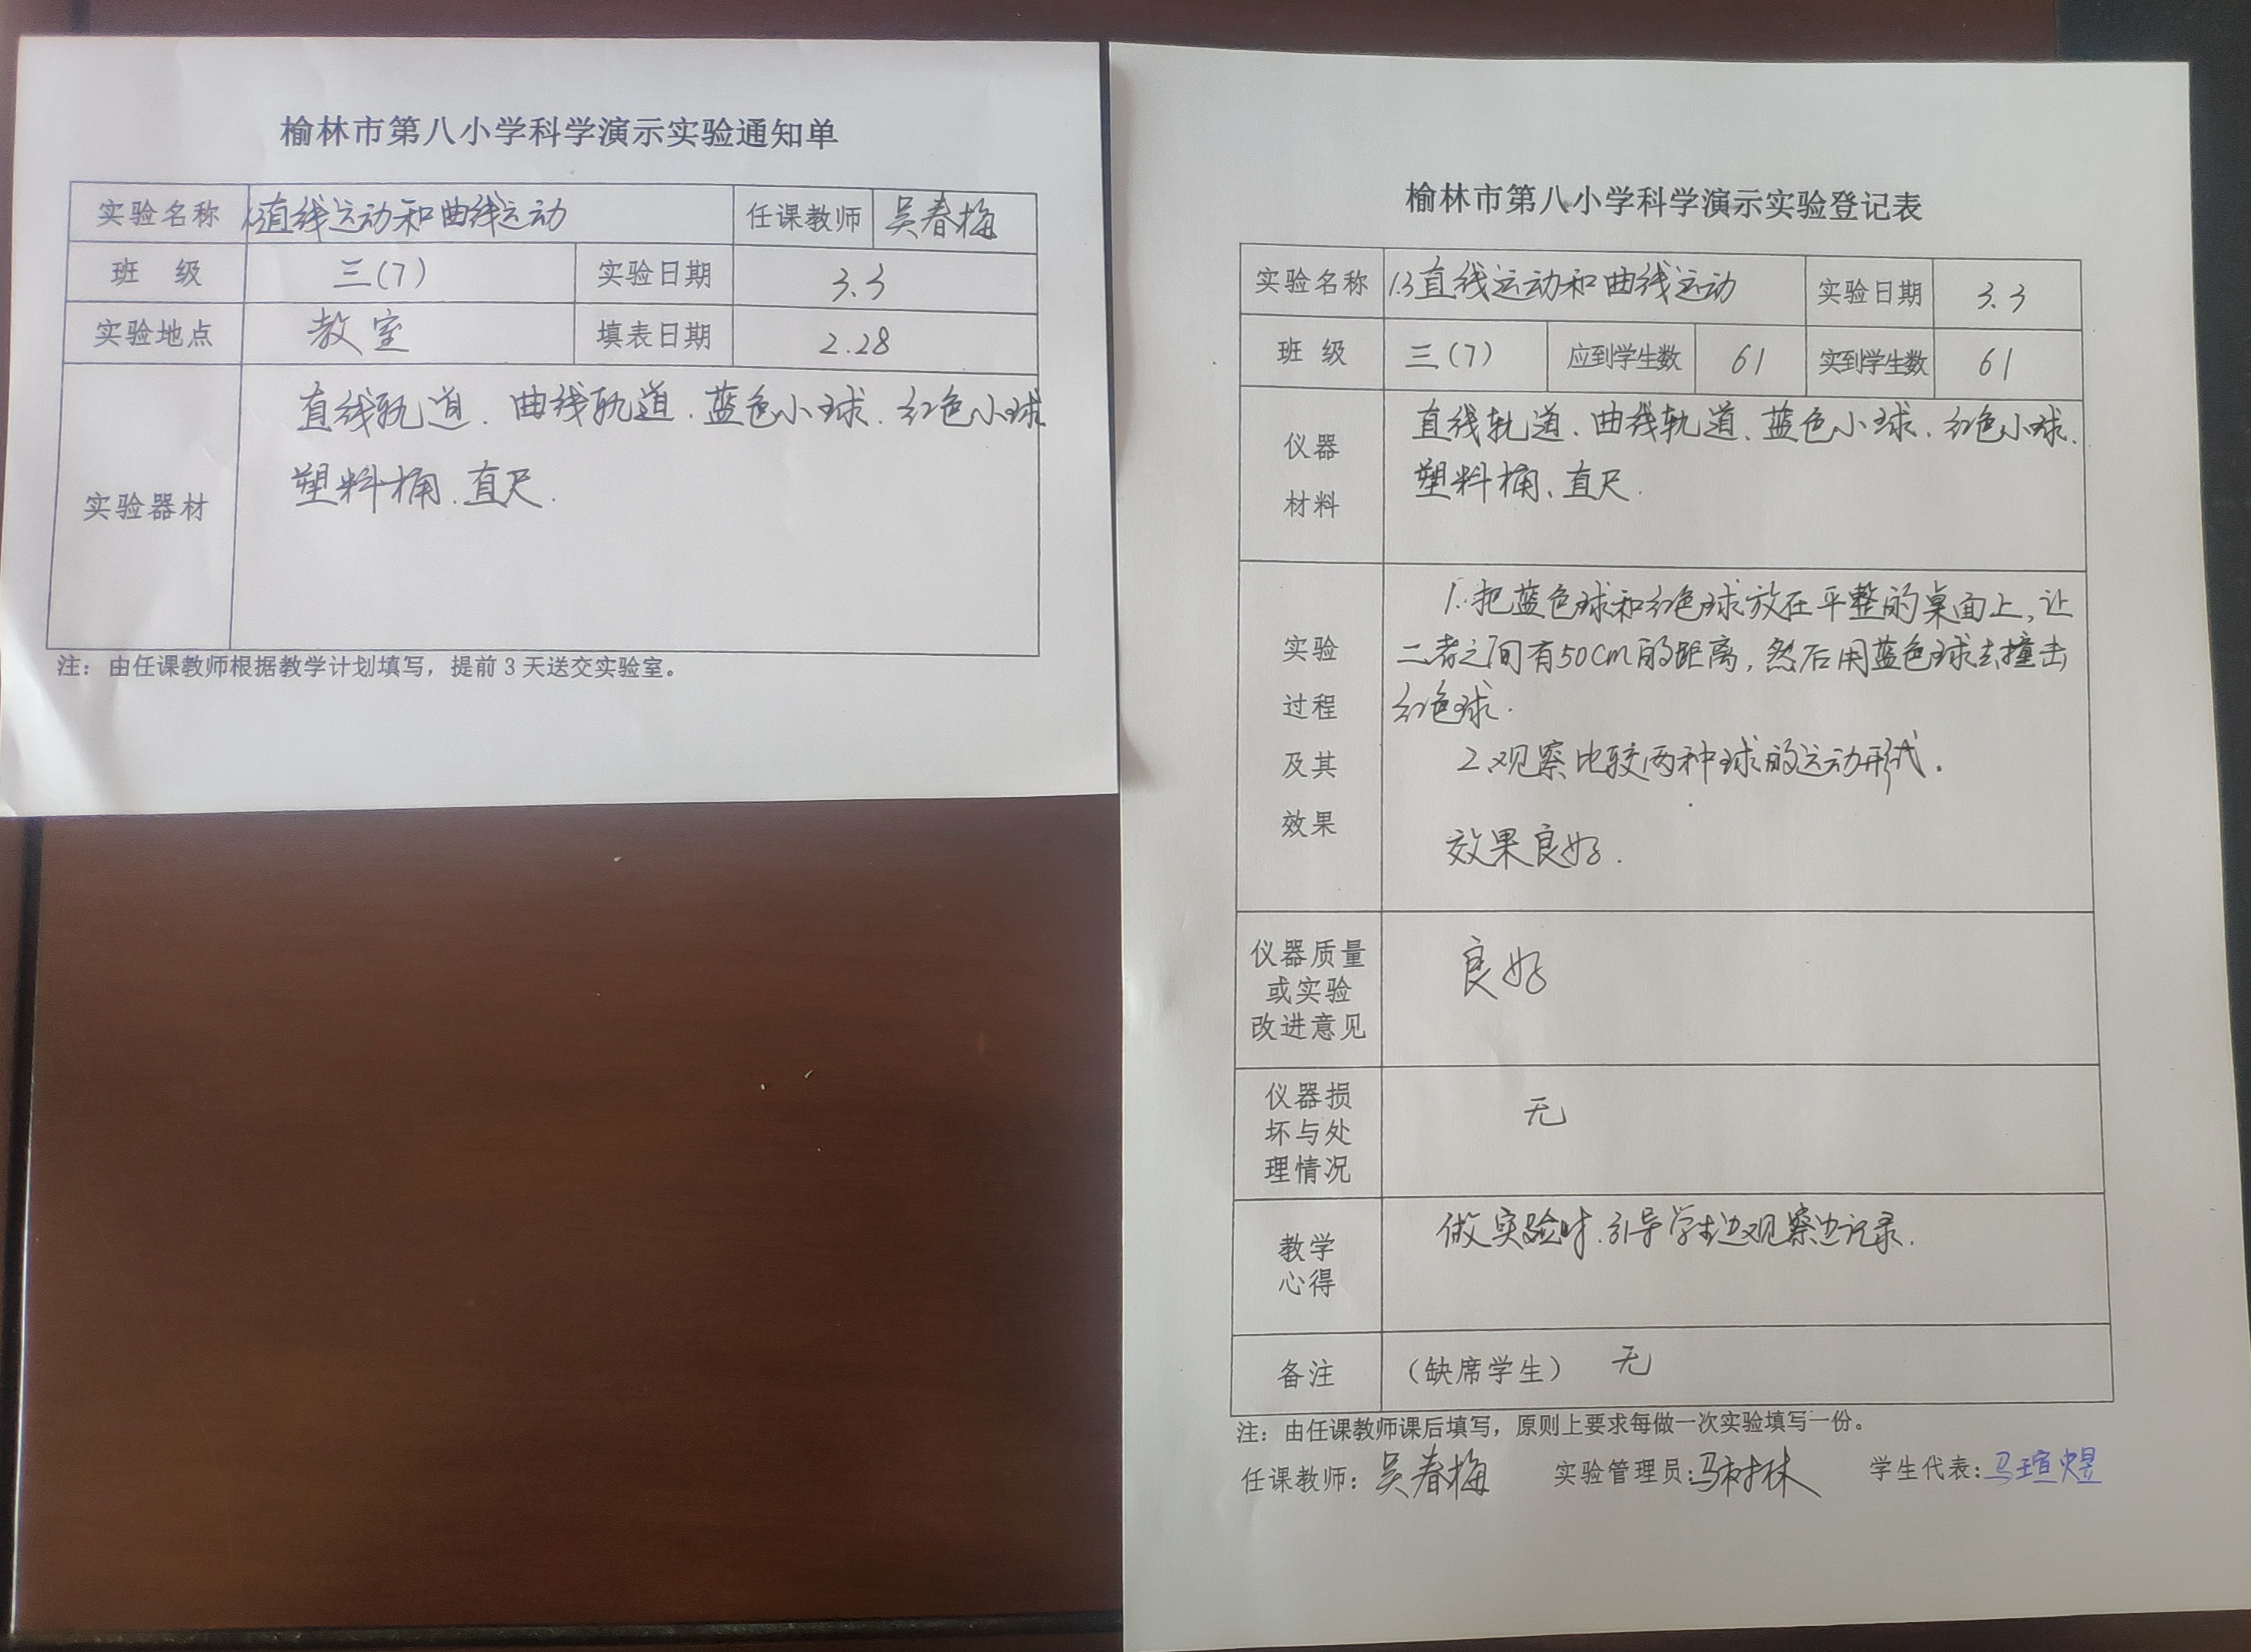 榆林市第八小学科学演示实验通知单
实验名称 1.3直线运动和曲线运动 任课教师 吴春梅
班 级 三(7) 实验日期 3.3
实验地点 教室 填表日期 2.28
直线轨道、曲线轨道、蓝色小球、红色小球
塑料桶、直尺.
实验器材
注：由任课教师根据教学计划填写，提前3天送交实验室。
榆林市第八小学科学演示实验登记表
实验名称 1.3直线运动和曲线运动 实验日期 3.3
班 级 三(7) 应到学生数 61 实到学生数 61
仪器
材料
直线轨道、曲线轨道、蓝色小球、红色小球、
塑料桶、直尺.
实验
过程
及其
效果
1.把蓝色球和红色球放在平整的桌面上,让
二者之间有50cm的距离,然后用蓝色球去撞击
红色球.
2.观察比较两种球的运动形式.
效果良好.
仪器质量
或实验
改进意见
良好
仪器损
坏与处
理情况
无
教学
心得
做实验时.引导学生边观察边记录.
备注 （缺席学生） 无
注：由任课教师课后填写，原则上要求每做一次实验填写一份。
任课教师：吴春梅 实验管理员：马树林 学生代表：马瑄煜